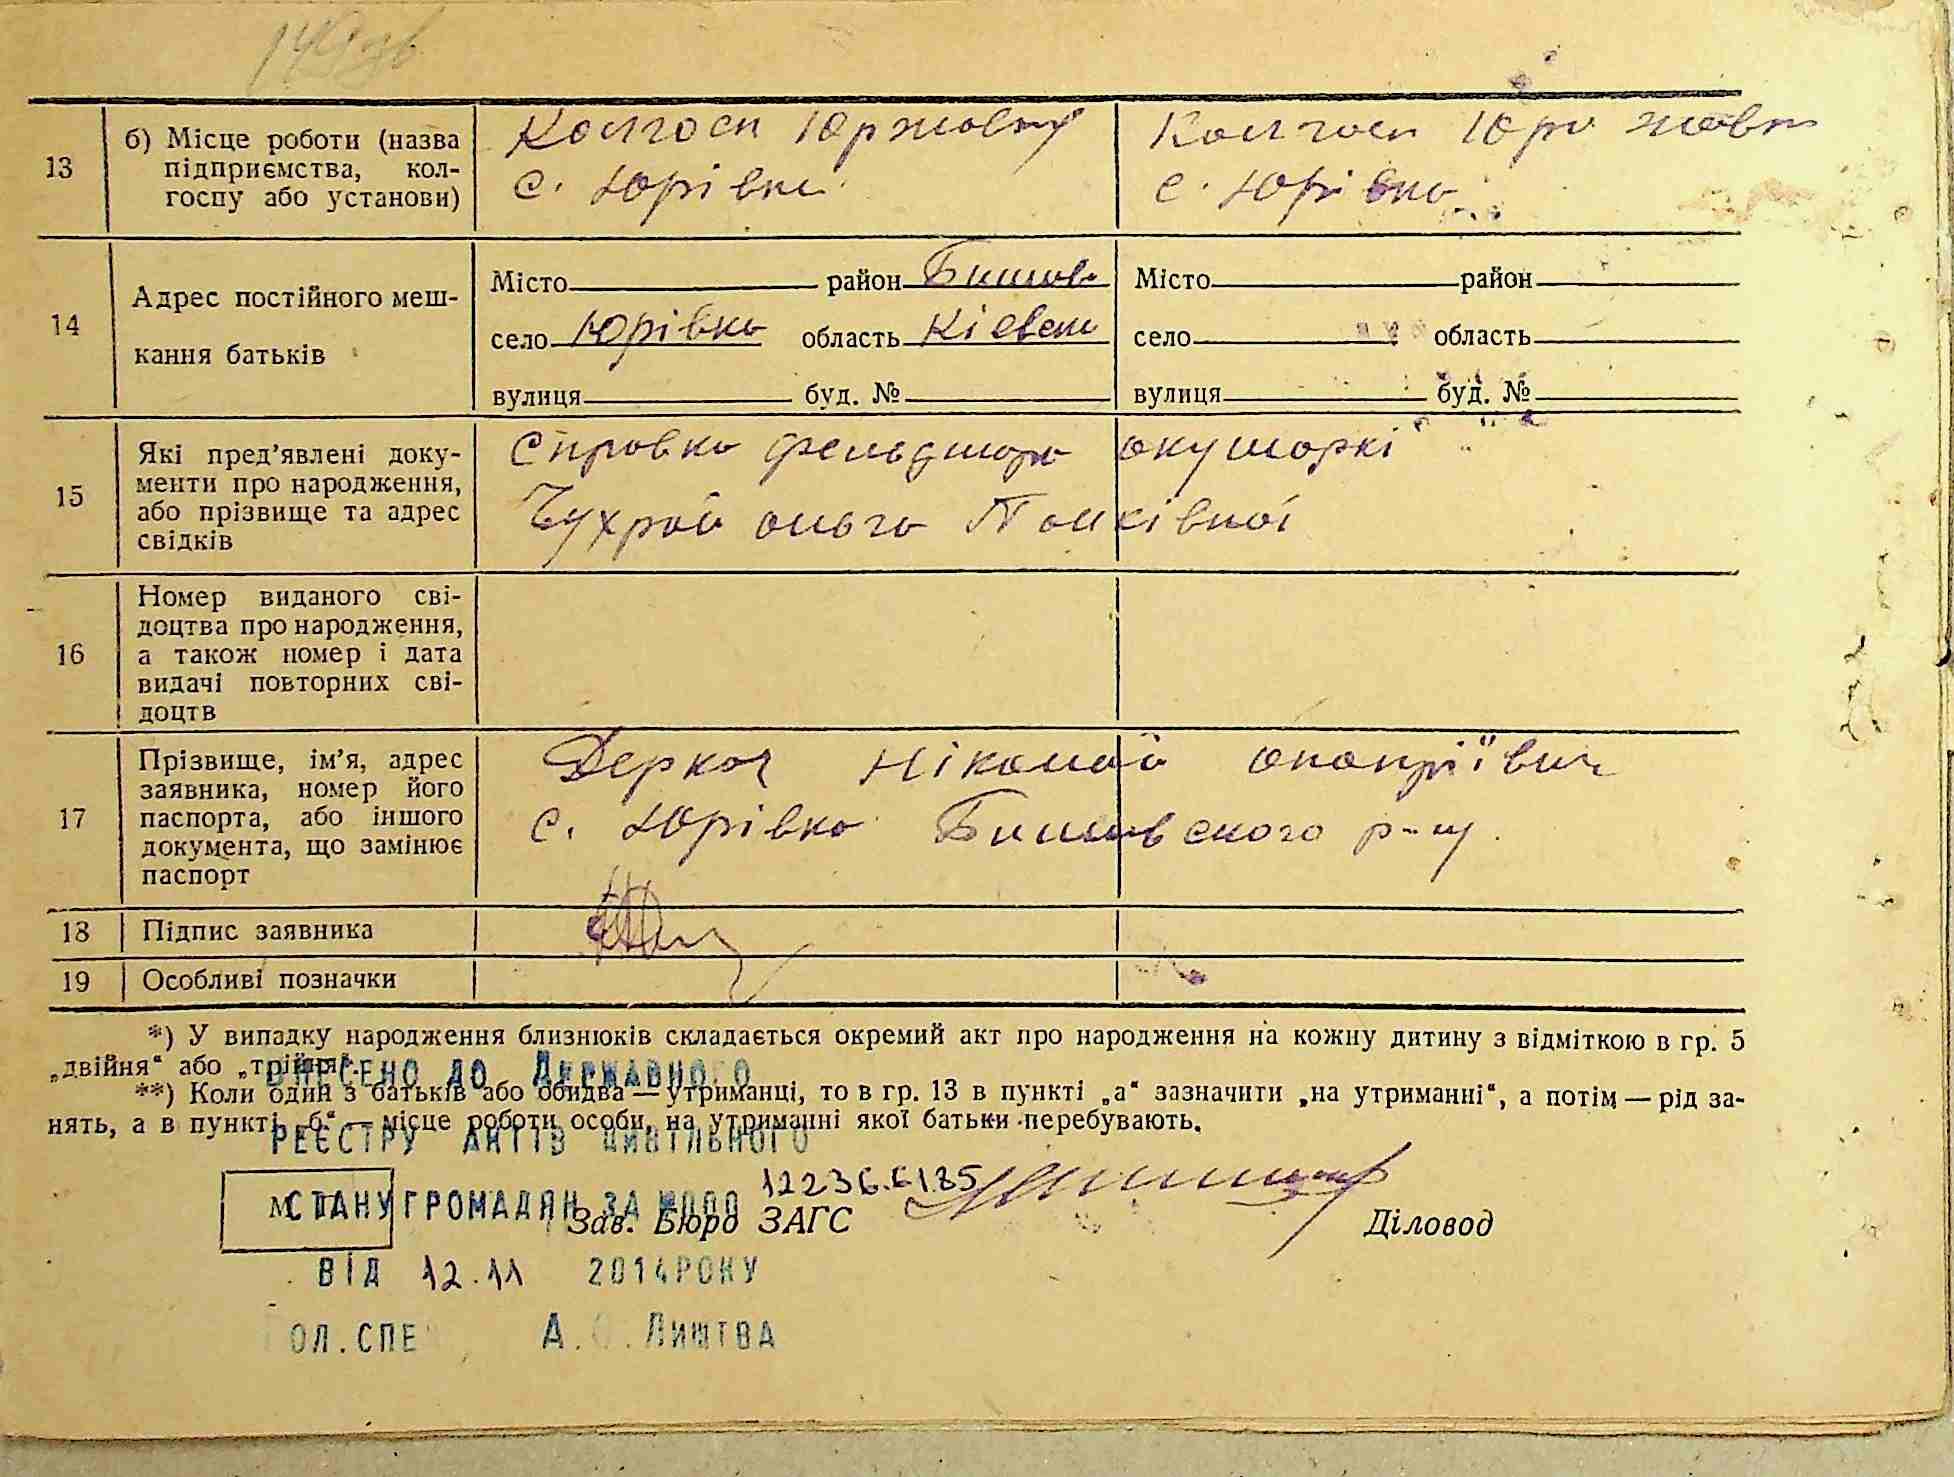 149зв
13 б) Місце роботи (назва
підприємства, кол-
госпу або установи)
Колгосп
с. Юрівка
Колгосп
с. Юрівка
14 Адрес постійного меш-
кання батьків
Місто район Бишов
село Юрівка область Кієвськ
вулиця буд. №
Місто район
село область
вулиця буд. №
15 Які пред'явлені доку-
менти про народження,
або прізвище та адрес
свідків
Справка фельдшера акушеркі
Чухрай
16 Номер виданого сві-
доцтва про народження,
а також номер і дата
видачі повторних сві-
доцтв
17 Прізвище, ім'я, адрес
заявника, номер його
паспорта, або іншого
документа, що замінює
паспорт
Деркач Ніколай
с. Юрівка Бишовского р-ну.
18 Підпис заявника
19 Особливі позначки
*) У випадку народження близнюків складається окремий акт про народження на кожну дитину з відміткою в гр. 5
„двійня“ або „трійня“.
**) Коли один з батьків або обидва — утриманці, то в гр. 13 в пункті „а“ зазначити „на утриманні“, а потім — рід за-
нять, а в пункті „б“ — місце роботи особи, на утриманні якої батьки перебувають.
ВНЕСЕНО ДО ДЕРЖАВНОГО
РЕЄСТРУ АКТІВ ЦИВІЛЬНОГО
СТАНУ ГРОМАДЯН ЗА №
М. П.
Зав. Бюро ЗАГС
Діловод
ВІД 12.11 2014РОКУ
ГОЛ.СПЕЦ А.О.ЛИШТВА